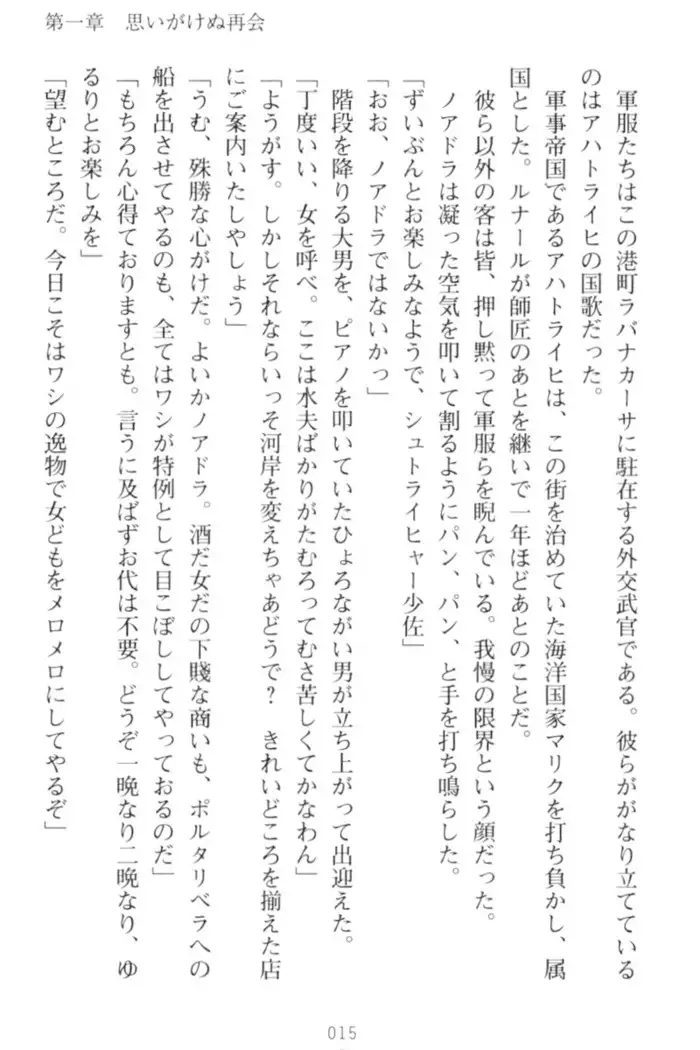 第一章　思いがけぬ再会
　軍服たちはこの港町ラバナカーサに駐在する外交武官である。彼らががなり立てている
のはアハトライヒの国歌だった。
　軍事帝国であるアハトライヒは、この街を治めていた海洋国家マリクを打ち負かし、属
国とした。ルナールが師匠のあとを継いで一年ほどあとのことだ。
　彼ら以外の客は皆、押し黙って軍服らを睨んでいる。我慢の限界という顔だった。
　ノアドラは凝った空気を叩いて割るようにパン、パン、と手を打ち鳴らした。
「ずいぶんとお楽しみなようで、シュトライヒャー少佐」
「おお、ノアドラではないかっ」
　階段を降りる大男を、ピアノを叩いていたひょろながい男が立ち上がって出迎えた。
「丁度いい、女を呼べ。ここは水夫ばかりがたむろってむさ苦しくてかなわん」
「ようがす。しかしそれならいっそ河岸を変えちゃあどうで？　きれいどころを揃えた店
にご案内いたしやしょう」
「うむ、殊勝な心がけだ。よいかノアドラ。酒だ女だの下賤な商いも、ポルタリベラへの
船を出させてやるのも、全てはワシが特例として目こぼししてやっておるのだ」
「もちろん心得ておりますとも。言うに及ばずお代は不要。どうぞ一晩なり二晩なり、ゆ
るりとお楽しみを」
「望むところだ。今日こそはワシの逸物で女どもをメロメロにしてやるぞ」
015